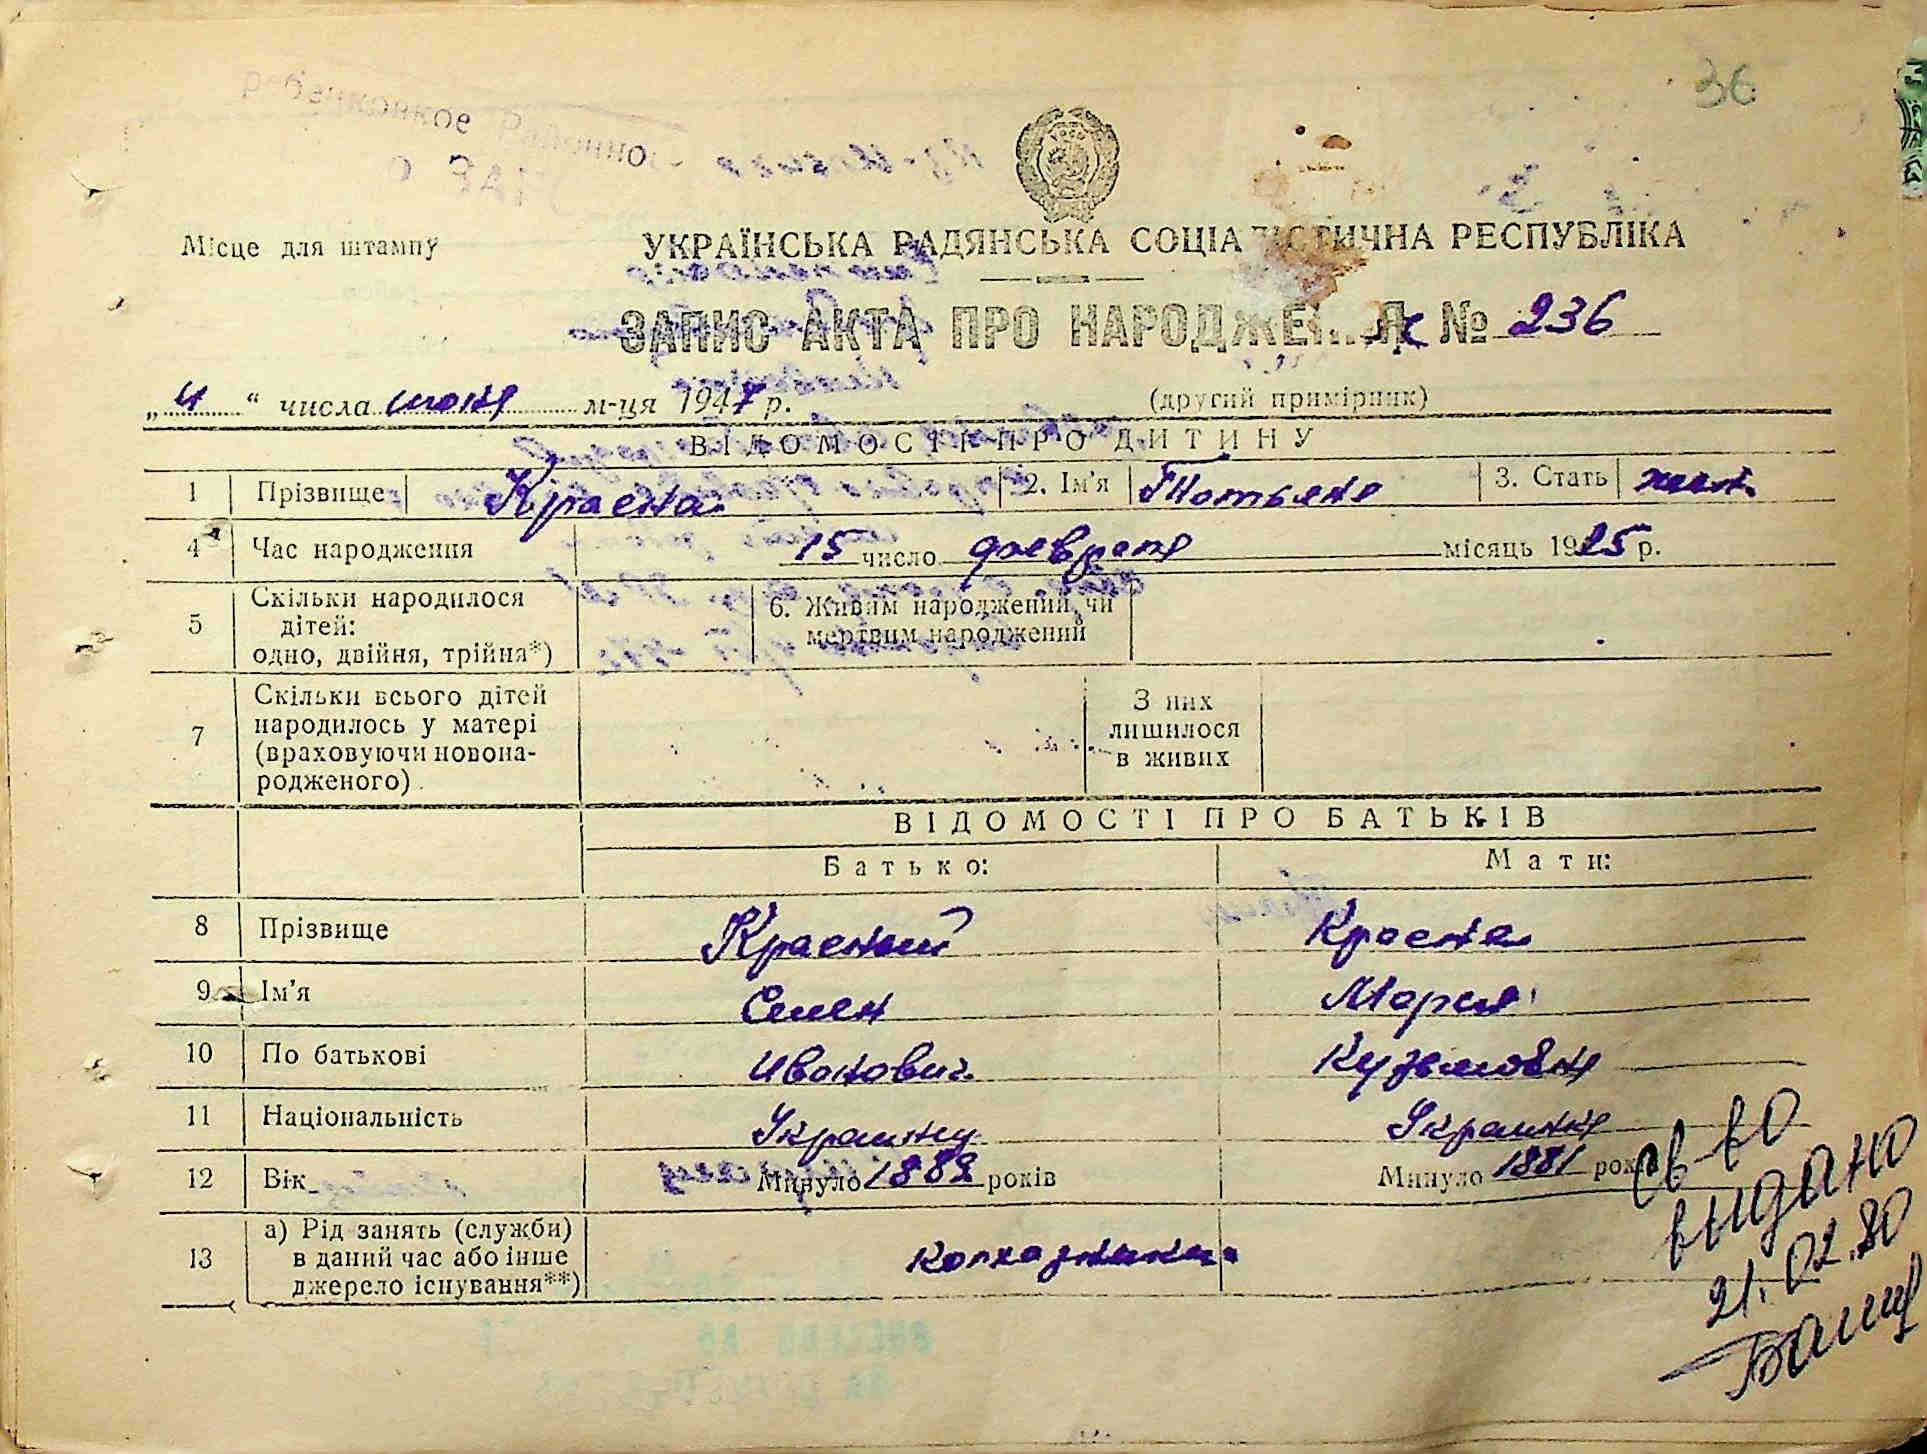 36
Місце для штампу
УКРАЇНСЬКА РАДЯНСЬКА СОЦІАЛІСТИЧНА РЕСПУБЛІКА
ЗАПИС АКТА ПРО НАРОДЖЕННЯ № 236
„ 4 “ числа июня м-ця 1947 р.
(другий примірник)
ВІДОМОСТІ ПРО ДИТИНУ
1 Прізвище Красная 2. Ім’я Татьяна 3. Стать жен.
4 Час народження 15 число февраля місяць 1925 р.
5 Скільки народилося дітей: одно, двійня, трійня*) 6. Живим народжений, чи мертвим народжений
7 Скільки всього дітей народилось у матері (враховуючи новонародженого) З них лишилося в живих
ВІДОМОСТІ ПРО БАТЬКІВ
Батько: Мати:
8 Прізвище Красный Красная
9 Ім’я Семен Мария
10 По батькові Иванович Кузьмовна
11 Національність Украинец Украинка
12 Вік Минуло 1882 років Минуло 1881 років
13 а) Рід занять (служби) в даний час або інше джерело існування**) колхозники
св-во
выдано
21.02.80